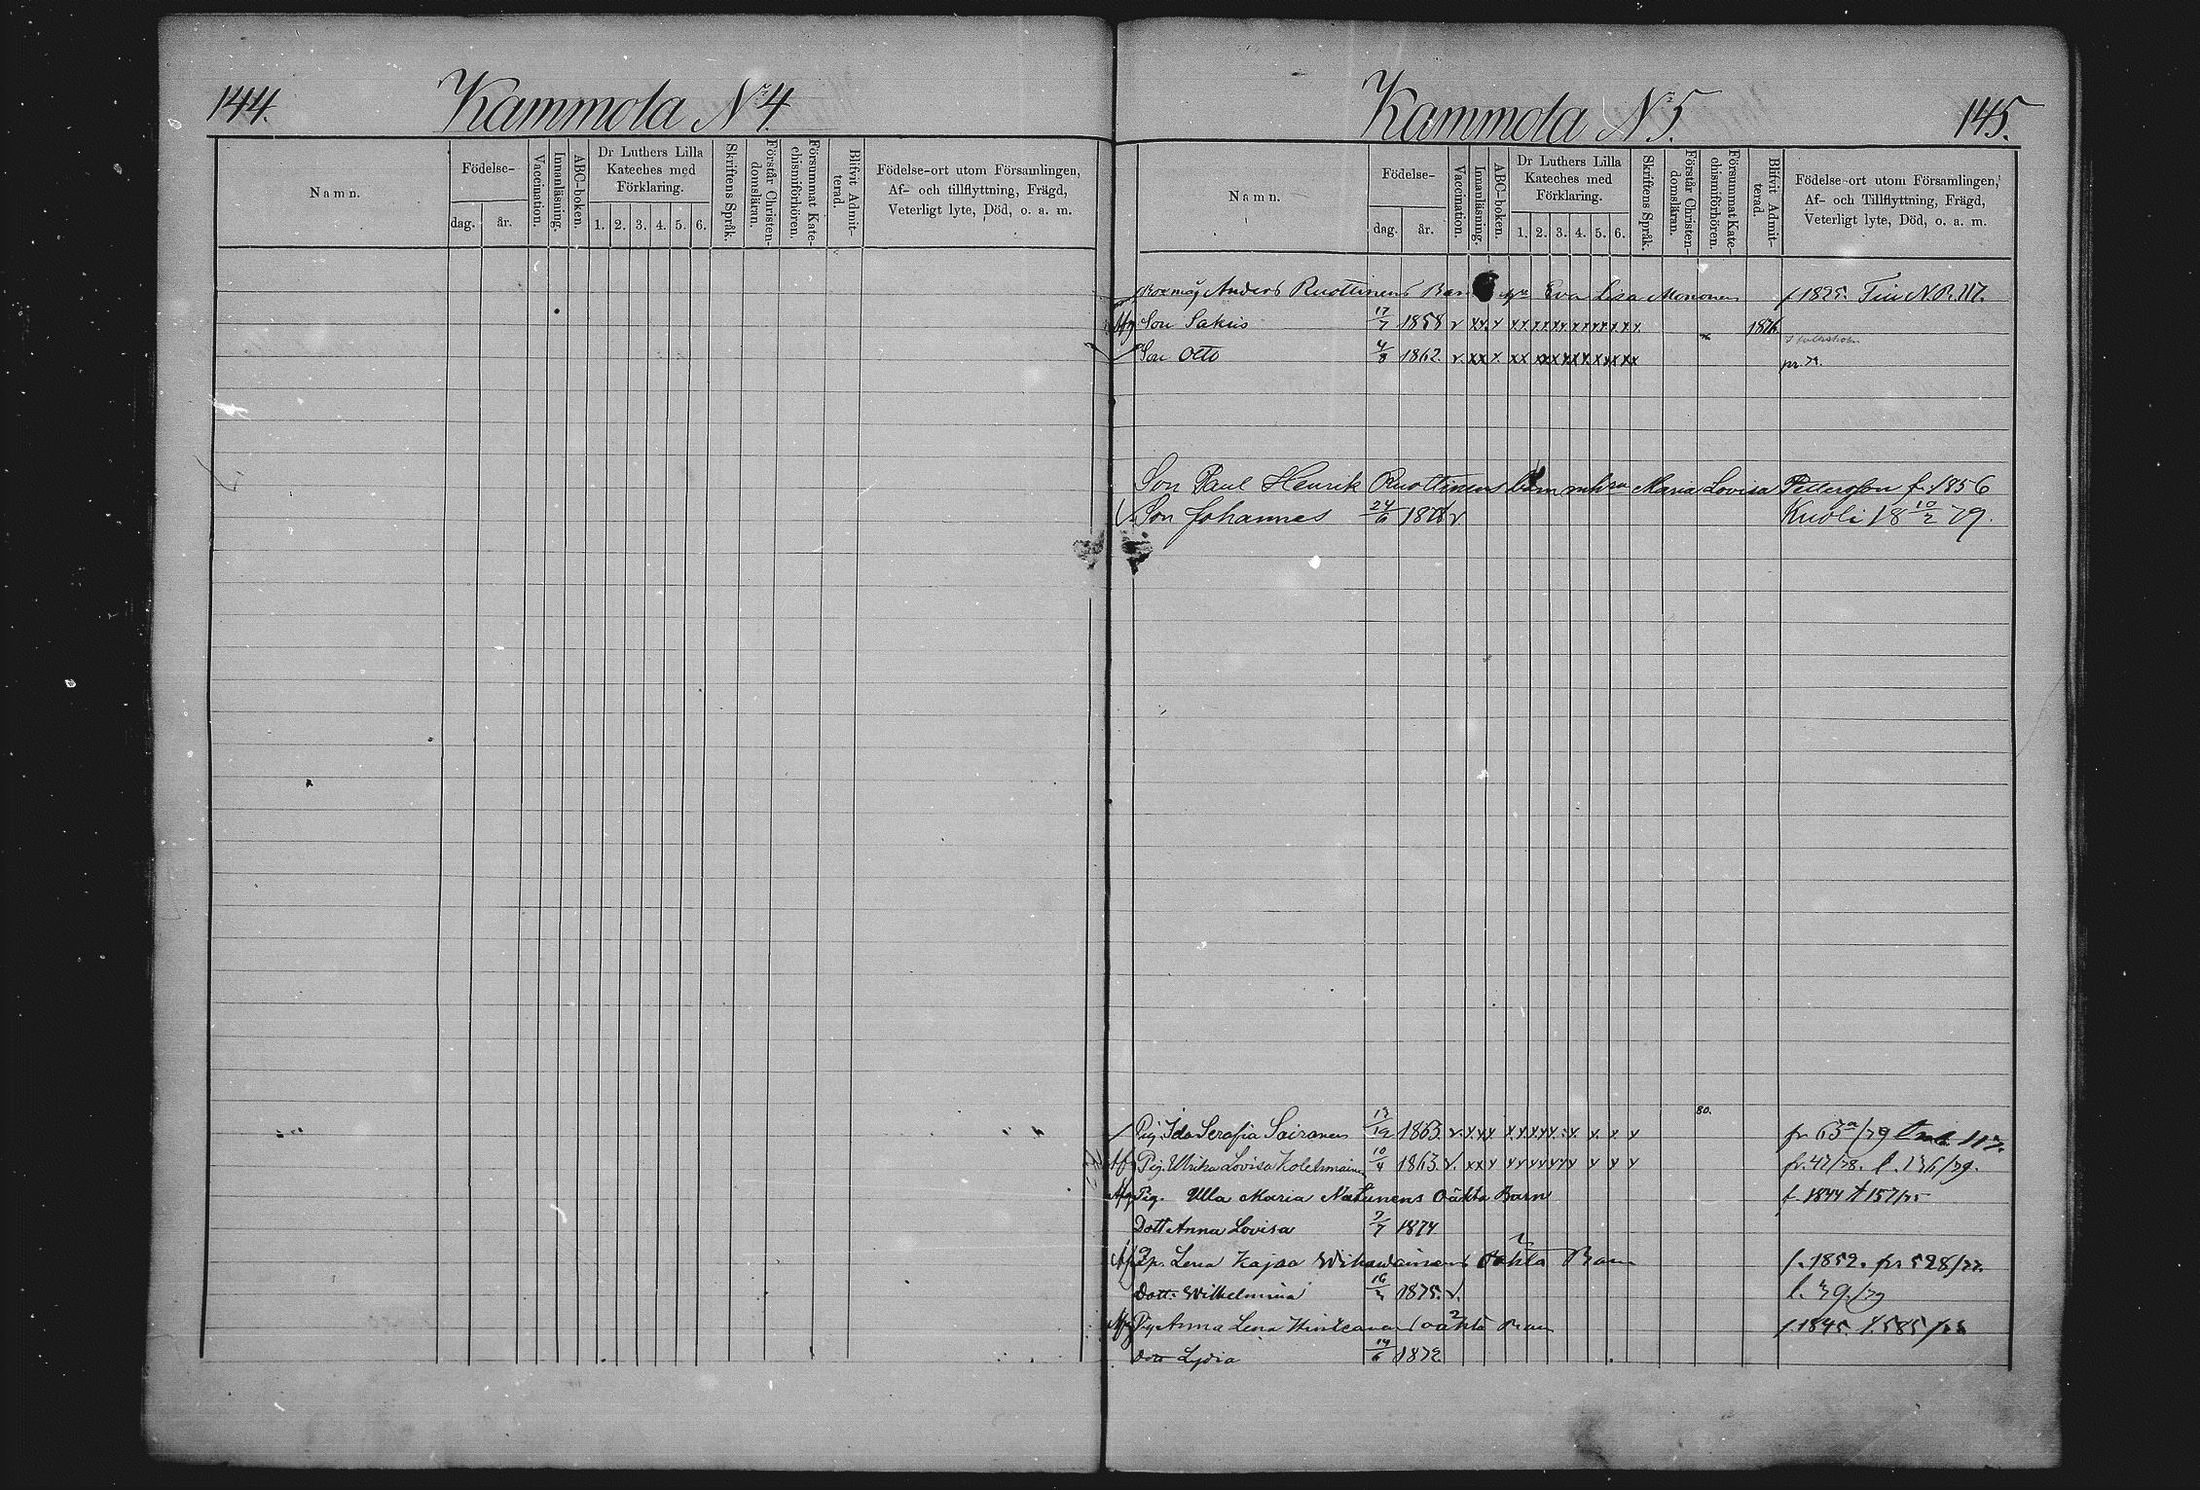 144.
Kammola No 4.
Namn.
Födelse-
dag.
år.
Vaccination.
Innanläsning.
ABC-boken.
Dr Luthers Lilla
Kateches med
Förklaring.
1. 2. 3. 4. 5. 6.
Skriftens Språk.
Förstår Christen-
domsläran.
Försummat Kate-
chismiförhören.
Blifvit Admit-
terad.
Födelse-ort utom Församlingen,
Af- och tillflyttning, Frägd,
Veterligt lyte, Död, o. a. m.
Kammola No 5.
145.
Namn.
Födelse-
dag.
år.
Vaccination.
Innanläsning.
ABC-boken.
Dr Luthers Lilla
Kateches med
Förklaring.
1. 2. 3. 4. 5. 6.
Skriftens Språk.
Förstår Christen-
domsläran.
Försummat Kate-
chismiförhören.
Blifvit Admit-
terad.
Födelse-ort utom Församlingen,
Af- och Tillflyttning, Frägd,
Veterligt lyte, Död, o. a. m.
Anders Ruottinens Eva Lisa Mononen f. 1825.
Son Sakris 17/7 1858 v xx x x x x x x x x x x x 1876
Son Otto 4/8 1862. v xx x xx xx x x x x x x x x pr. 79.
Son Paul Henrik Ruottinens Barn m hu Maria Lovisa Pettersson f. 1856
Son Johannes 24/6 18 v Kuoli 18 10/2 79.
80.
Pig. Ida Serafia Sairanen 13/12 1863. v. x xx x x x x x x x x x fr 63a/79 117.
Pig. Ulrika Lovisa Kolehmainen 10/4 1863. v. xx x x x x x x x x x x fr. 47/78. l. 136/79.
Pig. Ulla Maria Natunens Oäkta Barn f. 1844 157/75
Dott Anna Lovisa 7/7 1874
Lena Kajsa Oäkta Barn f. 1852. fr 528/77.
Dott. Wilhelmina 1875. v. l. 39./79
Pig Anna Lena oäkta Barn f. 1845. 585
Dott Lydia 14/6 1872